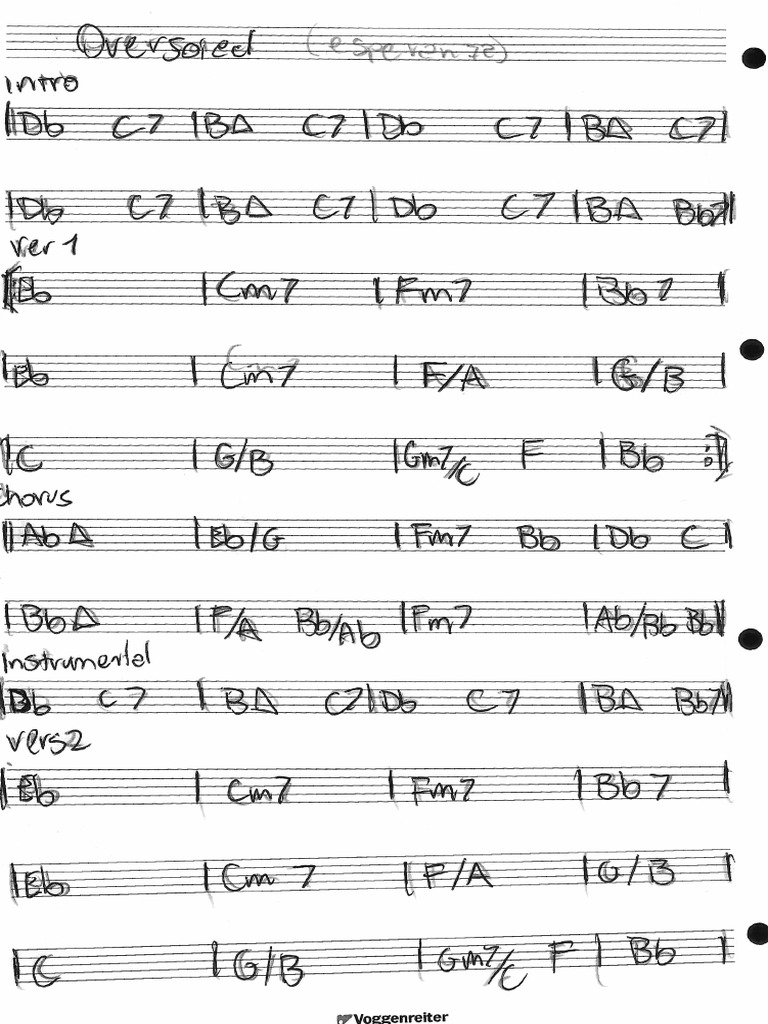 Oversoied (esperanza)
intro
|| Db C7 | BΔ C7 | Db C7 | BΔ C7 |
| Db C7 | BΔ C7 | Db C7 | BΔ Bb7 ||
ver 1
|: Eb | Cm7 | Fm7 | Bb7 |
| Eb | Cm7 | F/A | G/B |
| C | G/B | Gm7/C F | Bb :|
Chorus
|| AbΔ | Eb/G | Fm7 Bb | Db C |
| BbΔ | F/A Bb/Ab | Fm7 | Ab/Bb Bb ||
instrumental
| Db C7 | BΔ C7 | Db C7 | BΔ Bb7 ||
vers2
| Eb | Cm7 | Fm7 | Bb7 |
| Eb | Cm7 | F/A | G/B |
| C | G/B | Gm7/C F | Bb |
Voggenreiter